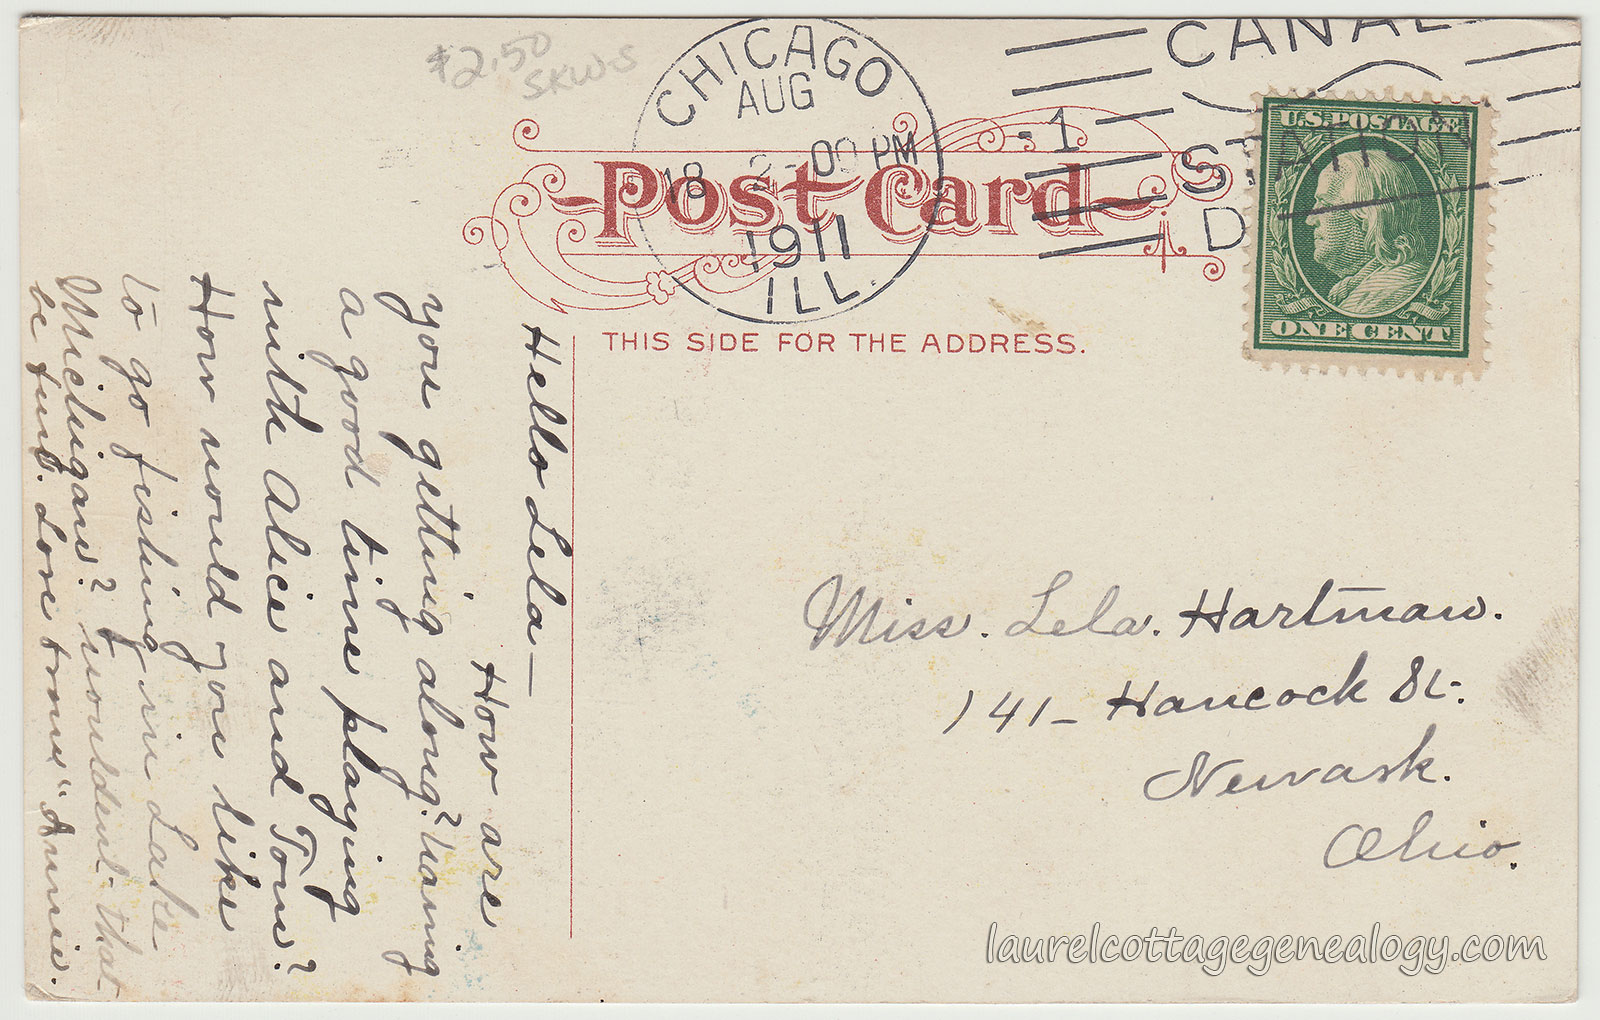 $2.50
SKW-S
CHICAGO
AUG
18 2-00 PM
1911
ILL.
CANAL
-1
STATION
D
U.S. POSTAGE
ONE CENT
Post Card
THIS SIDE FOR THE ADDRESS.
Hello Lela—
How are
you getting along? Having
a good time playing
with Alice and Tom?
How would you like
to go fishing in Lake
Michigan? wouldent that
be fun. Love from "Annie.
Miss. Lela. Hartman.
141- Hancock St.
Newark.
Ohio.
laurelcottagegenealogy.com